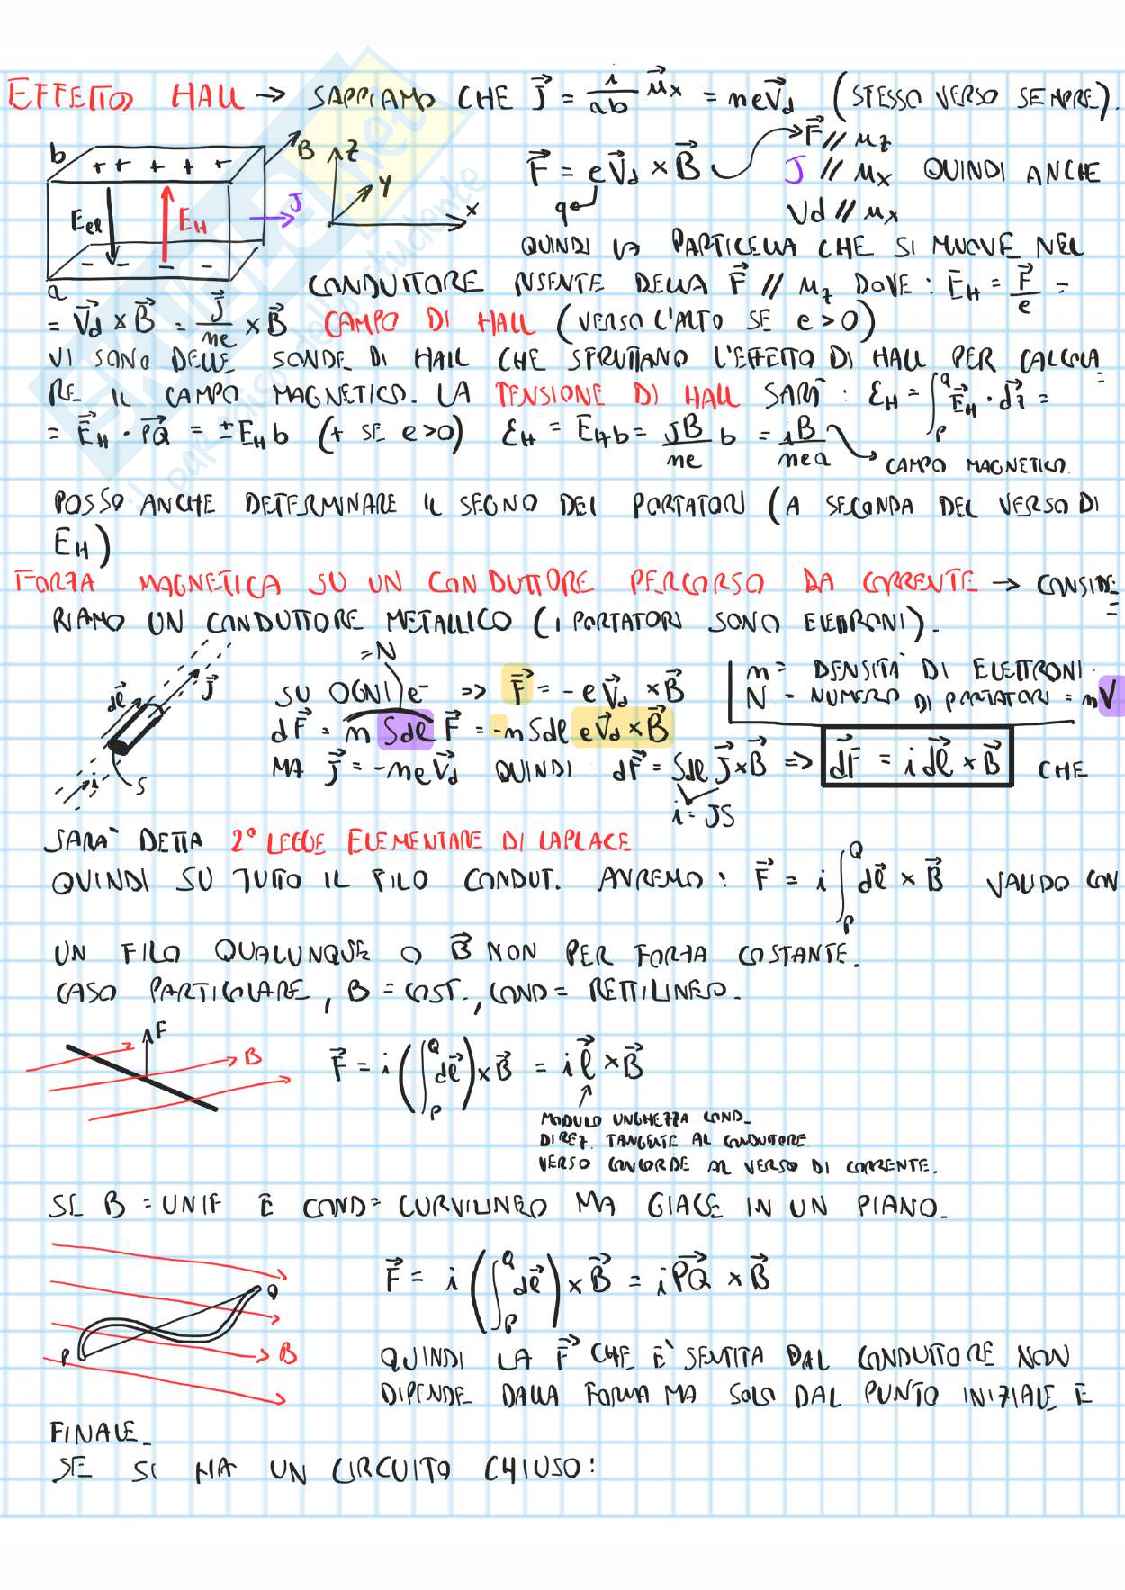 EFFETTO HALL → SAPPIAMO CHE J⃗ = i/ab u⃗x = neV⃗d (STESSO VERSO SEMPRE).
b + + + + + B Z Y X
F⃗ = eV⃗d × B⃗ F⃗ // uz
q
J // ux QUINDI ANCHE
Vd // ux
Eel EH J
- - - -
a
QUINDI LA PARTICELLA CHE SI MUOVE NEL
CONDUTTORE RISENTE DELLA F⃗ // uz DOVE : EH = F⃗/e =
= V⃗d × B⃗ = J⃗/ne × B⃗ CAMPO DI HALL (VERSO L'ALTO SE e > 0)
VI SONO DELLE SONDE DI HALL CHE SFRUTTANO L'EFFETTO DI HALL PER CALCOLA
RE IL CAMPO MAGNETICO. LA TENSIONE DI HALL SARÀ : ℰH = ∫PQ E⃗H · dl⃗ =
= E⃗H · PQ⃗ = ± EH b (+ SE e>0) ℰH = EH b = JB/ne b = iB/nea → CAMPO MAGNETICO.
POSSO ANCHE DETERMINARE IL SEGNO DEI PORTATORI (A SECONDA DEL VERSO DI
EH)
FORZA MAGNETICA SU UN CONDUTTORE PERCORSO DA CORRENTE → CONSIDE
RIAMO UN CONDUTTORE METALLICO (I PORTATORI SONO ELETTRONI).
dl⃗ J⃗ i S
=N
SU OGNI e⁻ => F⃗ = -eV⃗d × B⃗
n = DENSITÀ DI ELETTRONI.
N = NUMERO DI PORTATORI = nV
dF⃗ = n Sdl F⃗ = -nSdl eV⃗d × B⃗
MA J⃗ = -neV⃗d QUINDI dF⃗ = Sdl J⃗ × B⃗ => dF⃗ = i dl⃗ × B⃗ CHE
i = JS
SARÀ DETTA 2° LEGGE ELEMENTARE DI LAPLACE
QUINDI SU TUTTO IL FILO CONDUT. AVREMO : F⃗ = i ∫PQ dl⃗ × B⃗ VALIDO CON
UN FILO QUALUNQUE O B⃗ NON PER FORZA COSTANTE.
CASO PARTICOLARE, B = COST., COND = RETTILINEO.
F B
F⃗ = i (∫PQ dl⃗) × B⃗ = i l⃗ × B⃗
MODULO LUNGHEZZA COND.
DIREZ. TANGENTE AL CONDUTTORE
VERSO CONCORDE AL VERSO DI CORRENTE.
SE B = UNIF E COND = CURVILINEO MA GIACE IN UN PIANO.
P Q B
F⃗ = i (∫PQ dl⃗) × B⃗ = i PQ⃗ × B⃗
QUINDI LA F⃗ CHE È SENTITA DAL CONDUTTORE NON
DIPENDE DALLA FORMA MA SOLO DAL PUNTO INIZIALE E
FINALE.
SE SI HA UN CIRCUITO CHIUSO :